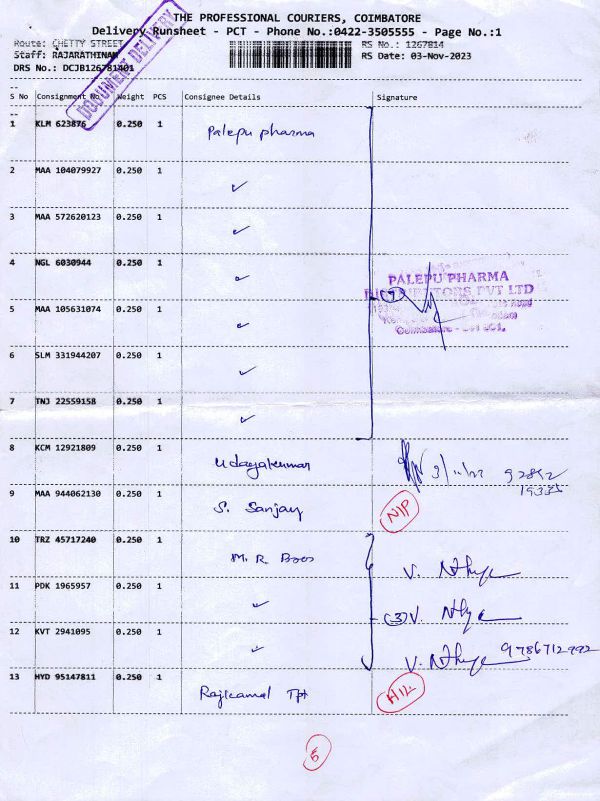 THE PROFESSIONAL COURIERS, COIMBATORE
Delivery Runsheet - PCT - Phone No.:0422-3505555 - Page No.:1
Route: CHETTY STREET RS No.: 1267814
Staff: RAJARATHINAM RS Date: 03-Nov-2023
DRS No.: DCJB126781401
DOCUMENT DELIVERY
S No Consignment No Weight PCS Consignee Details Signature
1 KLM 623876 0.250 1 Palepu pharma
2 MAA 104079927 0.250 1 ✓
3 MAA 572620123 0.250 1 ✓
4 NGL 6030944 0.250 1 ✓
PALEPU PHARMA
(7) DISTRIBUTORS PVT LTD
5 MAA 105631074 0.250 1 ✓
Coimbatore - 641 001.
6 SLM 331944207 0.250 1 ✓
7 TNJ 22559158 0.250 1 ✓
8 KCM 12921809 0.250 1 Udayakumar 3/11/23 92892
19335
9 MAA 944062130 0.250 1 S. Sanjay NIP
10 TRZ 45717240 0.250 1 M. R. Bros V. Nthya
11 PDK 1965957 0.250 1 ✓ (3) V. Nthya
12 KVT 2941095 0.250 1 ✓ V. Nthya 9786712992
13 HYD 95147811 0.250 1 Rajkamal Tpt HIL
5